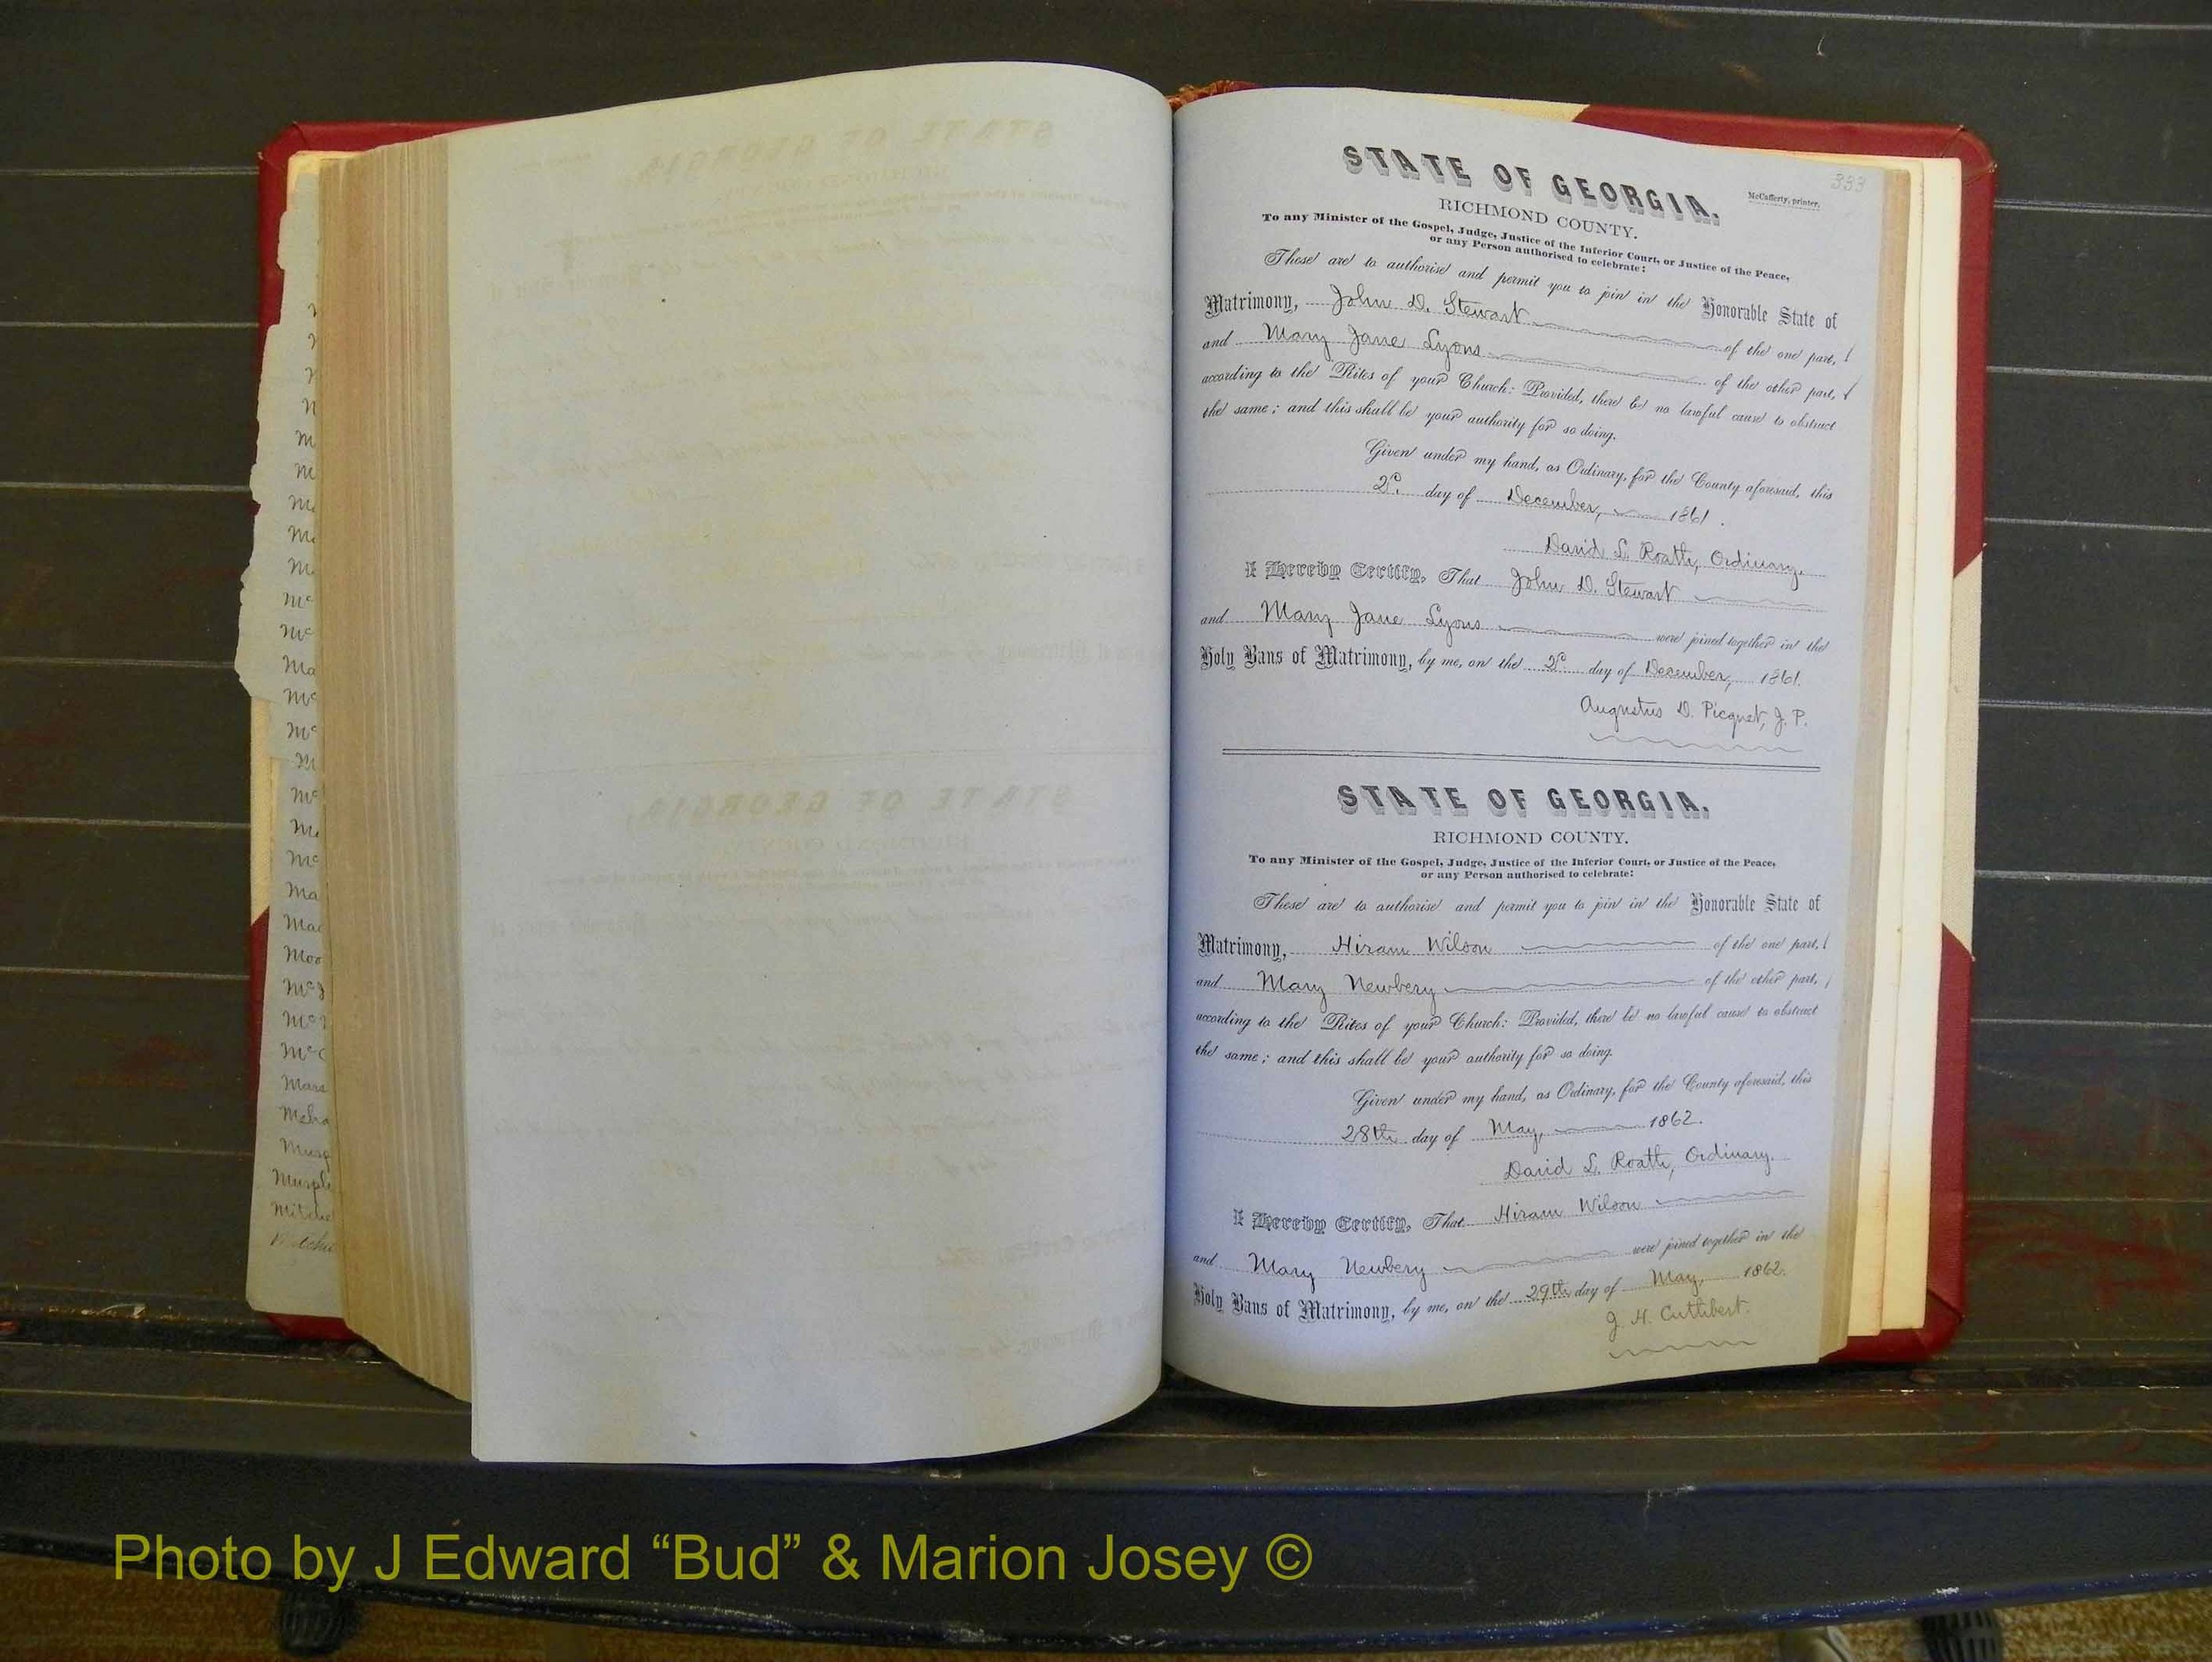 333
McCafferty, printer.
STATE OF GEORGIA.
RICHMOND COUNTY.
To any Minister of the Gospel, Judge, Justice of the Inferior Court, or Justice of the Peace,
or any Person authorised to celebrate:
These are to authorise and permit you to join in the Honorable State of
Matrimony, John D. Stewart of the one part,
and Mary Jane Lyons of the other part,
according to the Rites of your Church: Provided, there be no lawful cause to obstruct
the same; and this shall be your authority for so doing.
Given under my hand, as Ordinary, for the County aforesaid, this
2d. day of December, 1861.
David L. Roath, Ordinary.
I Hereby Certify, That John D. Stewart
and Mary Jane Lyons were joined together in the
Holy Bans of Matrimony, by me, on the 2d. day of December, 1861.
Augustus D. Picquet, J. P.
STATE OF GEORGIA.
RICHMOND COUNTY.
To any Minister of the Gospel, Judge, Justice of the Inferior Court, or Justice of the Peace,
or any Person authorised to celebrate:
These are to authorise and permit you to join in the Honorable State of
Matrimony, Hiram Wilson of the one part,
and Mary Newbery of the other part,
according to the Rites of your Church: Provided, there be no lawful cause to obstruct
the same; and this shall be your authority for so doing.
Given under my hand, as Ordinary, for the County aforesaid, this
28th day of May, 1862.
David L. Roath, Ordinary.
I Hereby Certify, That Hiram Wilson
and Mary Newbery were joined together in the
Holy Bans of Matrimony, by me, on the 29th day of May, 1862.
J. H. Cuthbert.
Photo by J Edward “Bud” & Marion Josey ©